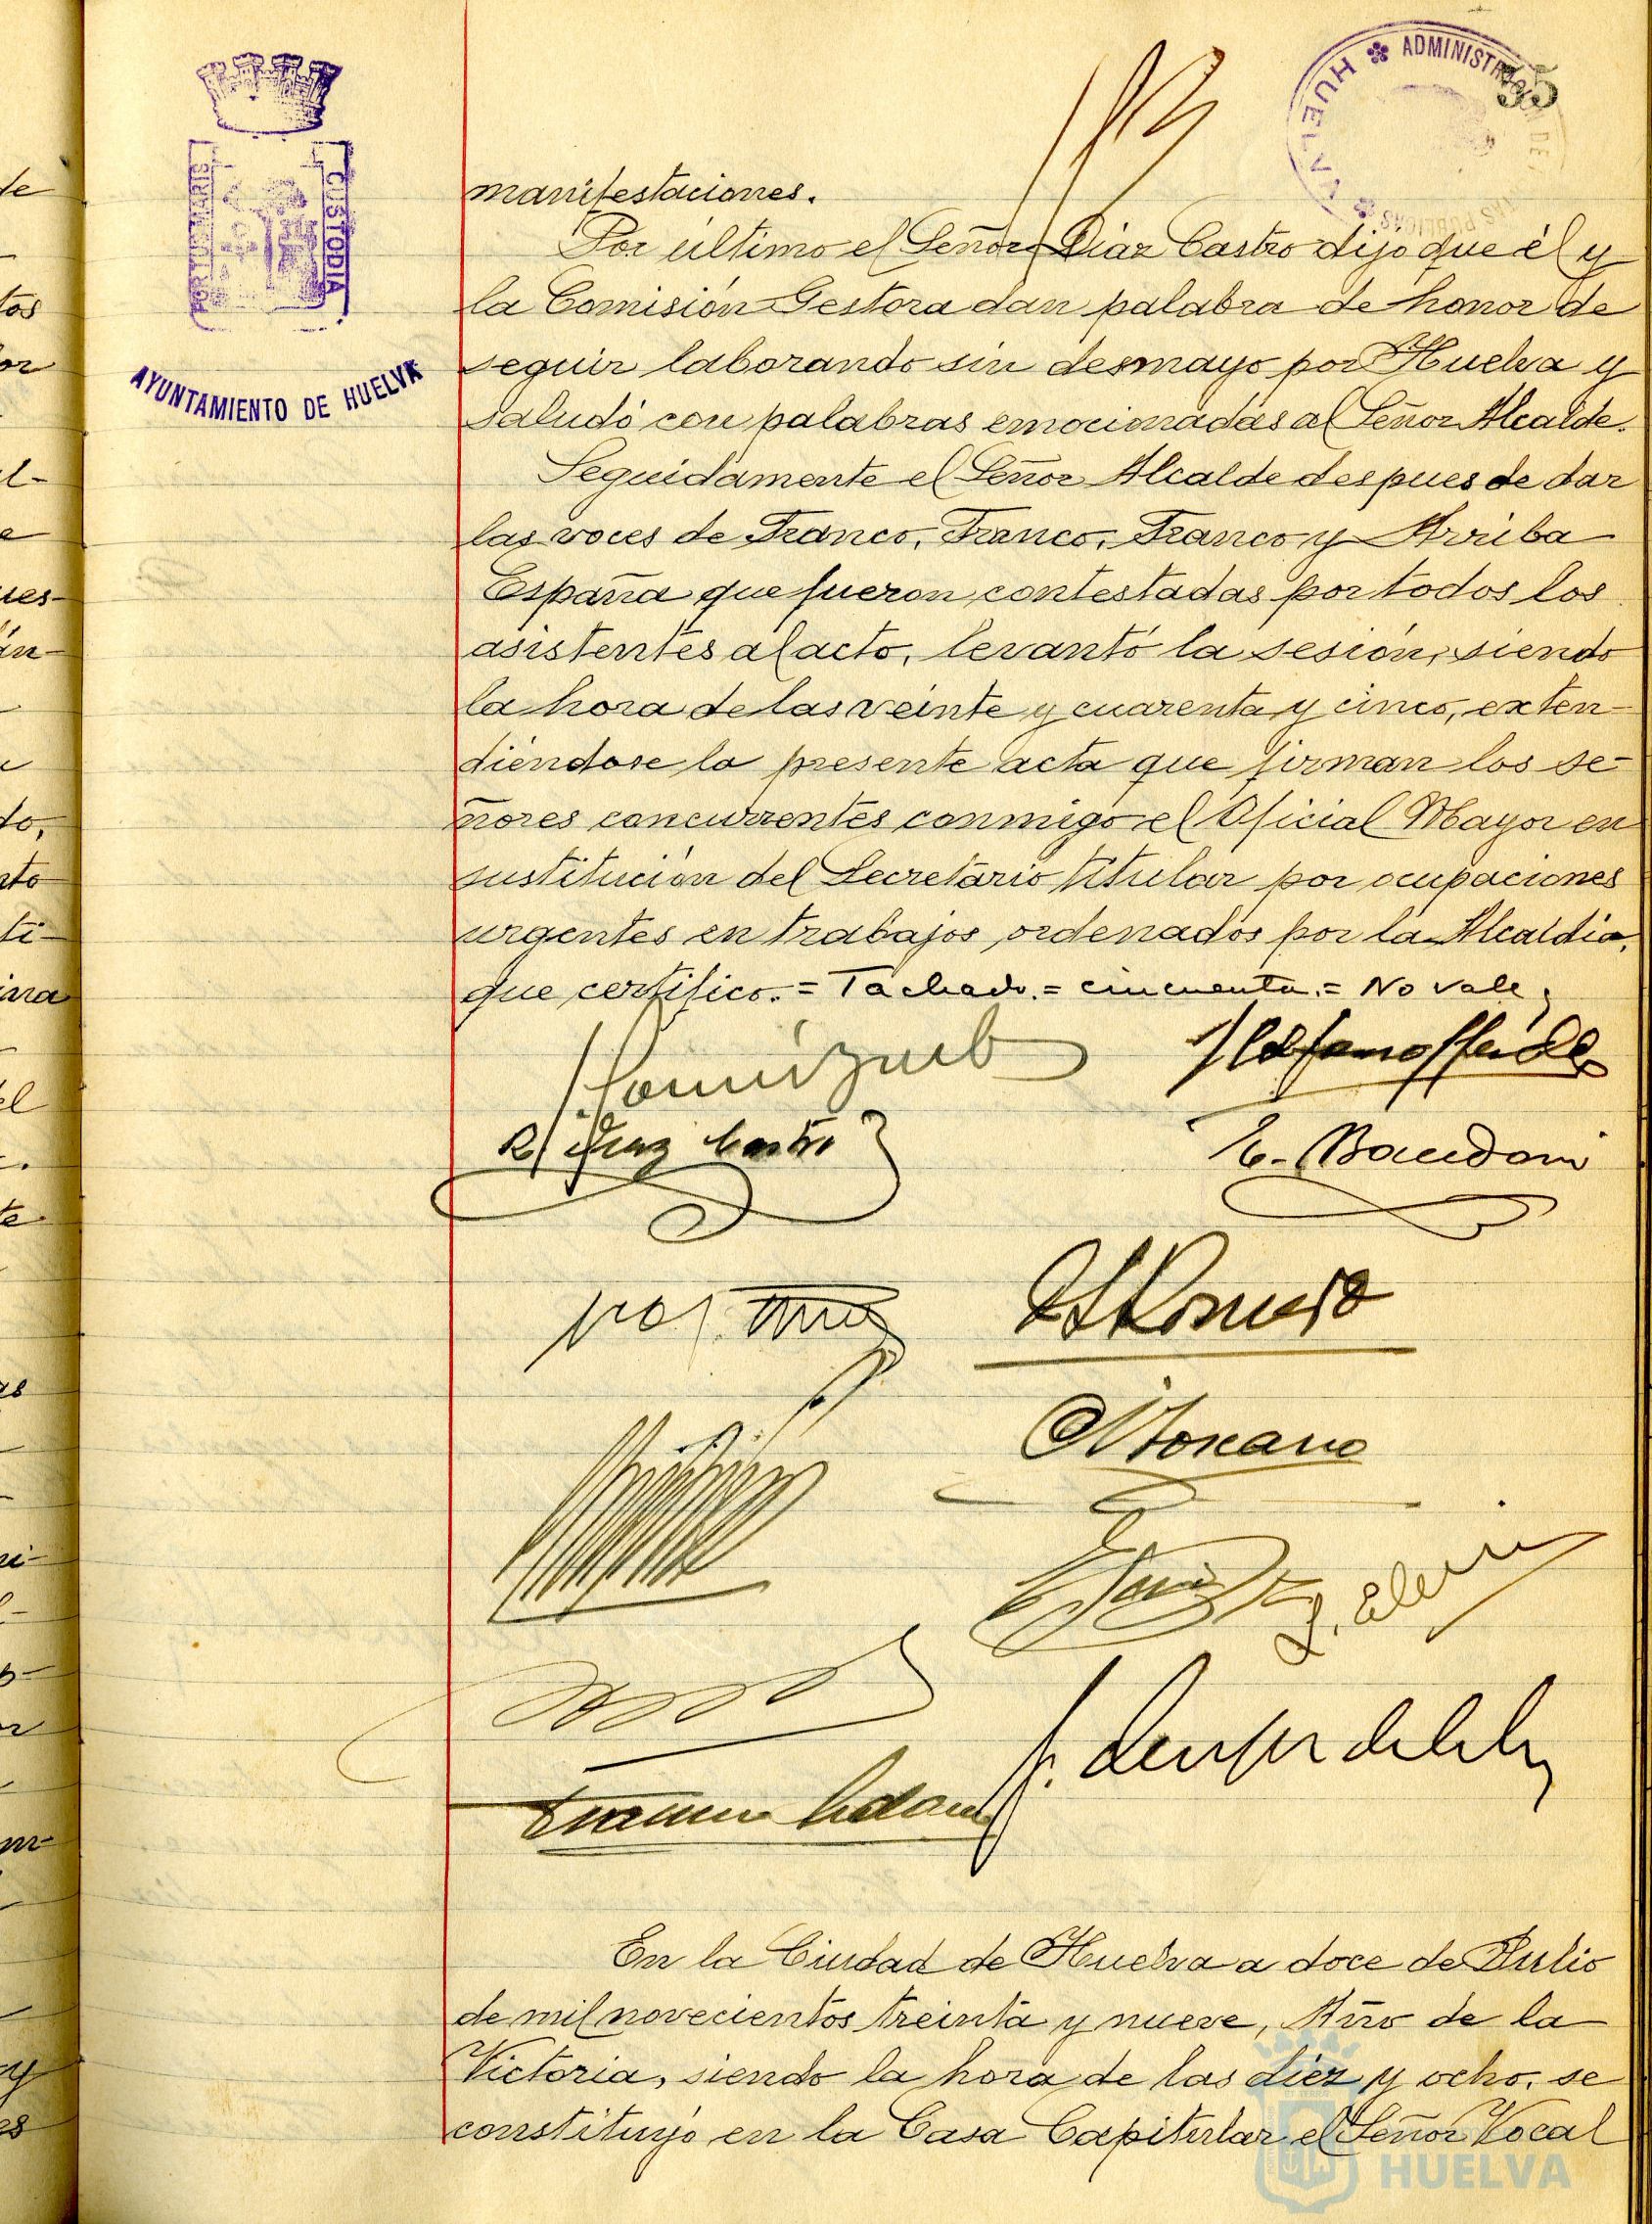 ADMINISTRACION DE
HUELVA
35
PORTUS MARIS
CUSTODIA
AYUNTAMIENTO DE HUELVA
manifestaciones.
Por último el Señor Diaz Castro dijo que él y
la Comisión Gestora dan palabra de honor de
seguir laborando sin desmayo por Huelva y
saludó con palabras emocionadas al Señor Alcalde.
Seguidamente el Señor Alcalde despues de dar
las voces de Franco, Franco, Franco y Arriba
España que fueron contestadas por todos los
asistentes al acto, levantó la sesión, siendo
la hora de las veinte y cuarenta y cinco, exten-
diéndose la presente acta que firman los se-
ñores concurrentes conmigo el Oficial Mayor en
sustitución del Secretario titular por ocupaciones
urgentes en trabajos ordenados por la Alcaldía,
que certifico.= Tachado.= cincuenta.= No vale.
R. Diaz Castro
E. Baudoin
Romero
En la Ciudad de Huelva a doce de Julio
de mil novecientos treinta y nueve, Año de la
Victoria, siendo la hora de las diez y ocho, se
constituyó en la Casa Capitular el Señor Vocal
HUELVA